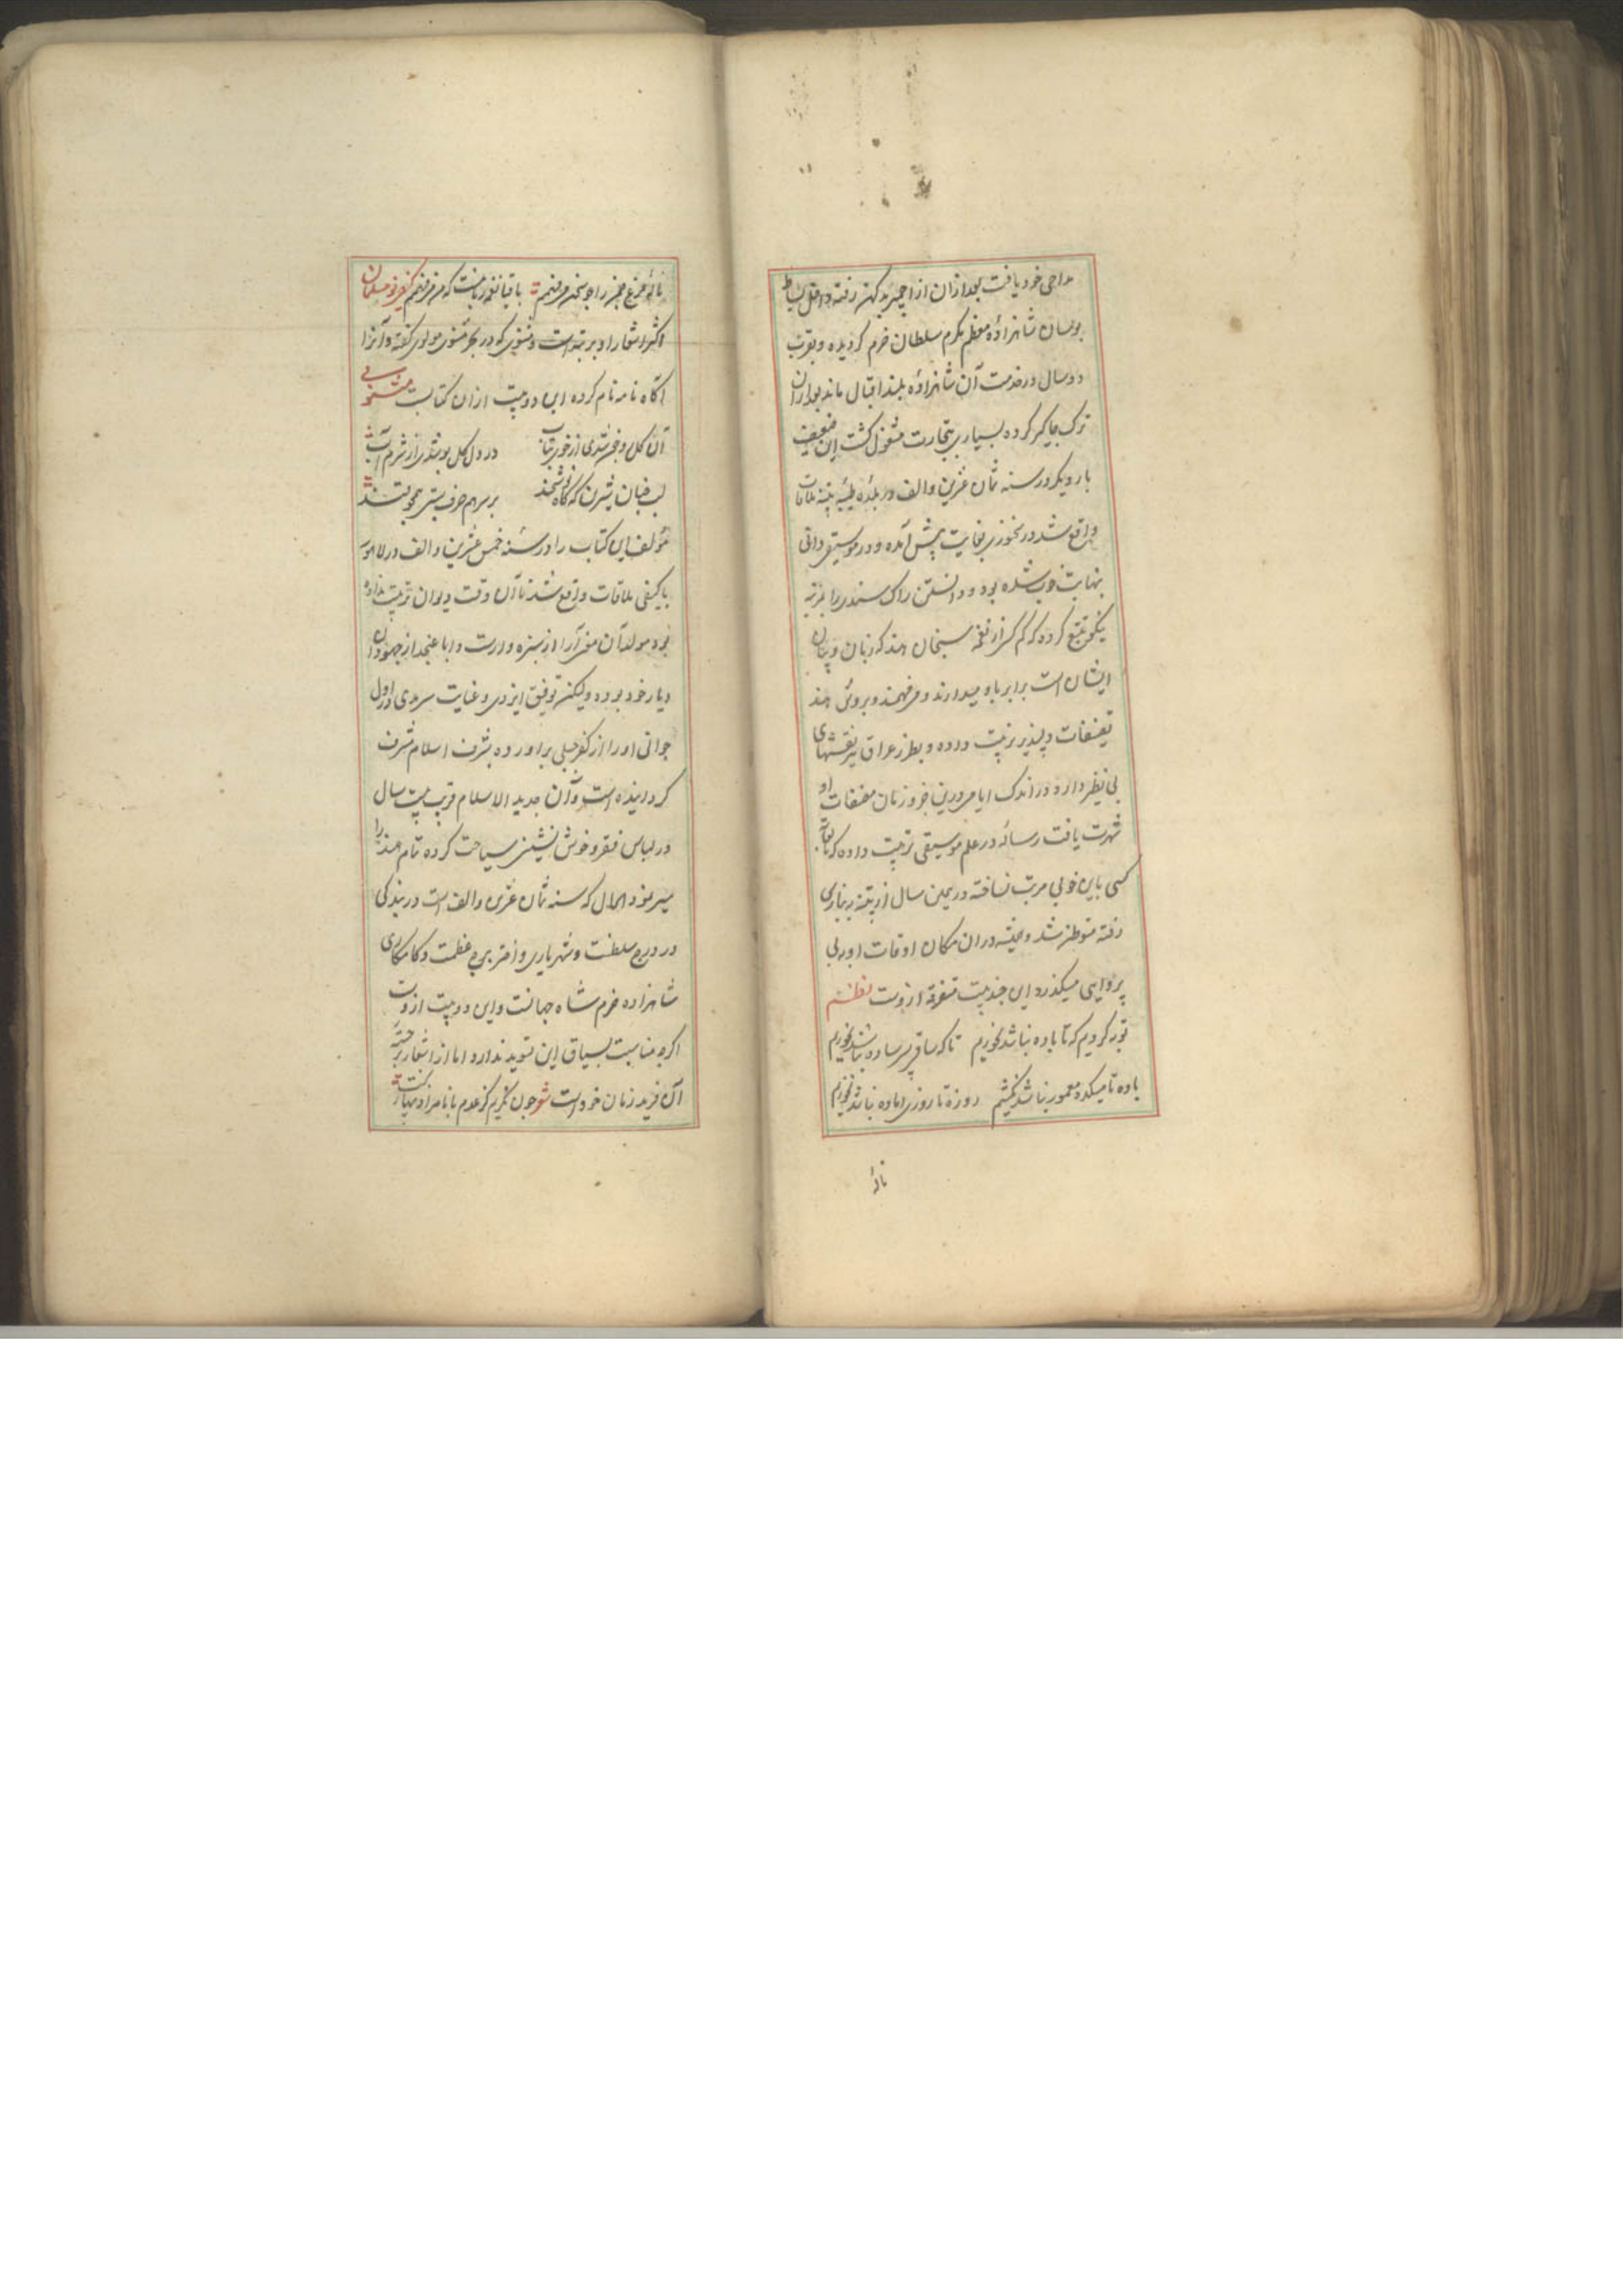 مداحی خود یافت بعد ازان از اجمیر بدکهن رفته داخل بساط
بوسان شاهزاده معظم مکرم سلطان خرم کردیده و بقرب
دو سال در خدمت آن شاهزاده بلند اقبال ماند بعد ازان
ترک جاکیر کرده بسیاری بتجارت مشغول کشت این ضعیف
بار دیکر در سنه ثمان عشرین و الف در بلده طیبه پتنه ملاقات
واقع شد در سخنوری بغایت پیش آمده و در موسیقی دانی
بنهایت خوب شده بود و دانستن راک هندی را بمرتبه
نیکو تتبع کرده که کم کسی از نغمه سنجان هند که زبان و بیان
ایشان است برابر باو میدارند و می فهمند و بروش هند
تصنیفات دلپذیر ترتیب داده و بطرز عراق نیز نقشهای
بی نظیر دارد در اندک ایامی درین جزو زمان مصنفات او
شهرت یافت رساله در علم موسیقی ترتیب داده که تا بغایت
کسی باین خوبی مرتب نساخته در همین سال از پتنه به بنارس
رفته متوطن شد و همیشه دران مکان اوقات او به بی
پروایی میکذرد این چند بیت متفرقه ازوست نظم
توبه کردیم که تا باده نباشد نخوریم تا که ساقی پسر ساده نباشد نخوریم
باده تا میکده معمور نباشد نکشیم روزه تا روزی اماده نباشد نخوریم
ناله
ناله مرغ چمن را چو سخن می فهمم باقیا نغمه زیباست که من می فهمم
اکثر اشعار او بر تبه است و مثنوی که در بحر مثنوی مولوی کفته و آنرا
آکاه نامه نام کرده این دو بیت ازان کتابست مثنوی
آن کل و خس شدی از خوی بتاب در دل کل بو شدی از شرم آب
لب خبان شیرین که کاه نوشخند بر سر هم حرف بستی همچو قند
مؤلف این کتاب را در سنه خمس عشرین و الف در لاهور
با کیفی ملاقات واقع شد تا آن وقت دیوان ترتیب نداده
بود مولد آن سخن آرا از سبزه وارست و ابا عنجد از جهودان
دیار خود بوده ولیکن توفیق ایزدی و عنایت سرمدی در اول
جوانی او را از کفر جبلی براورده بشرف اسلام مشرف
کردانیده است و آن جدید الاسلام قریب بیست سال
در لباس فقر و خوش نشینی سیاحت کرده تمام هند را
سیر نمود الحال که سنه ثمان عشرین و الف است در بندکی
در درج سلطنت و شهریاری و اختر برج عظمت و کامکاری
شاهزاده خرم شاه جهانست و این دو بیت ازوست
اکرچه مناسبت بسیاق این تسوید ندارد اما از اشعار برجسته
آن فرید زمان خود است شعر چون نکریم کز عدم با نامرادیها